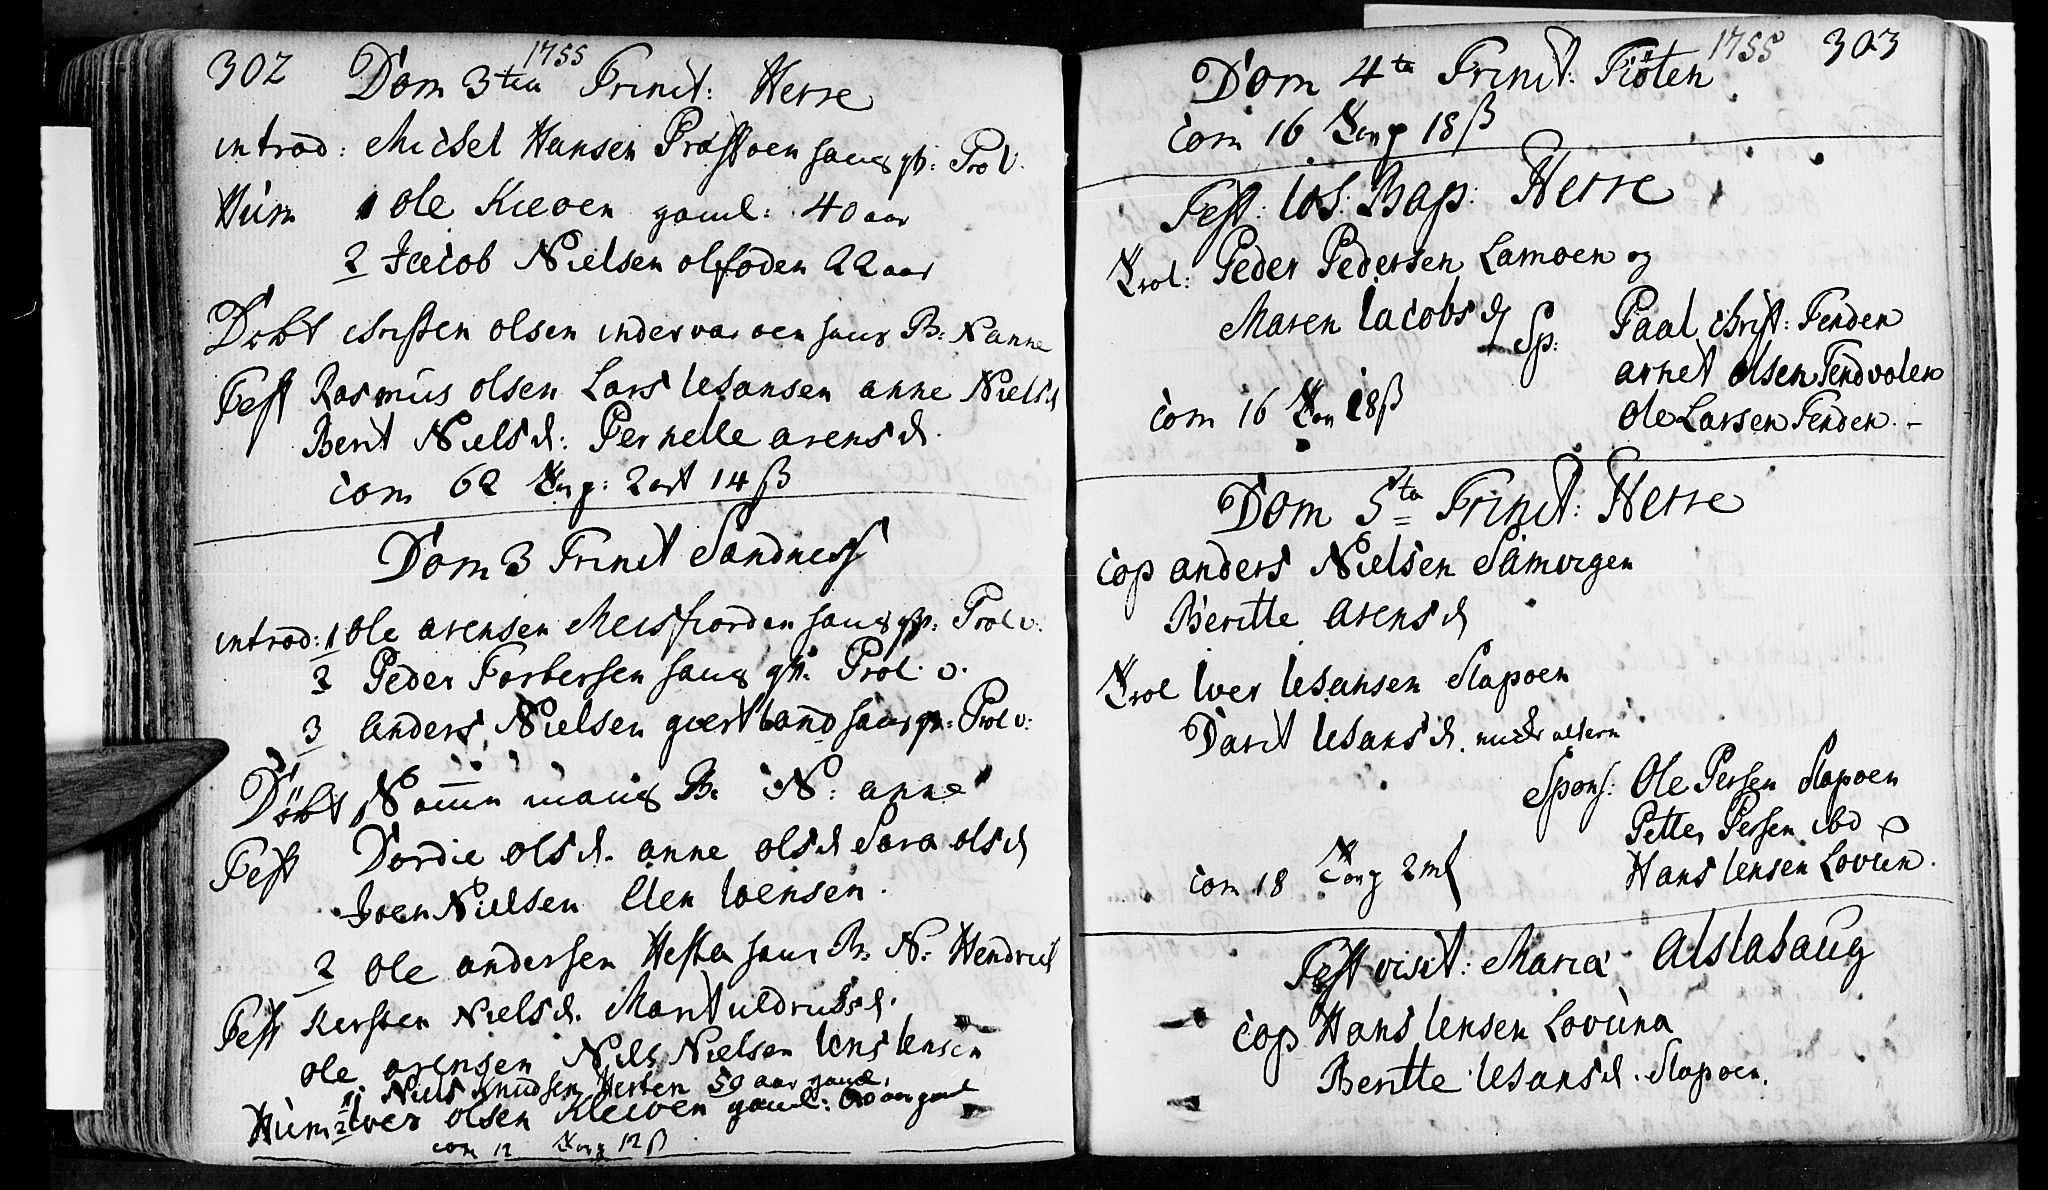 302 1755
Dom 3tia Trinit: Herre
introd: Michel Hansen Prestøen hans h: Prol v.
Hum 1 Ole Kleven gaml: 40 aar
2 Jacob Nielsen 22 aar
Döbt Christen Olsen indervar øen hans B: N anne
Test Rasmus Olsen Lars Johansen anne Nielsd
Berit Nielsd: Pernelle arensd.
Com 62 14 ß
Dom 3 Trinit Sandness
introd: 1 Ole arensen Meisfiorden hans h: Prol v.
2 Peder Torbersen hans h: Prol. v.
3 Anders Nielsen hans h: Prol v:
Döbt B: N: anne
Test Dordie olsd. anne olsd Sara olsd
Joen Nielsen
2 Ole andersen hans B: N: Hendric
Test Kersten Nielsd. Marit uldricsd.
Ole arensen Niels Nielsen Jens Jensen
1 Niels Knudsen 59 aar gaml.
Hum 2 Iver olsen Kleiven gaml:
com 12 12 ß
1755 303
Dom 4ta Trinit: Tiöten
Com 16 18 ß
Fest: Joh: Bap: Herre
Trol: Peder Pedersen Lamoen og
Maren Jacobsd
Sp: Paal Christ: Tenden
arnet Olsen Tendvolen
Ole Larsen Tenden.
Com 16 18 ß
Dom 5ta Trinit: Herre
Cop anders Nielsen
Beritte arensd
Trol Iver Johansen Slapøen
Darit Johansd.
Spons: Ole Persen Slapøen
Petter Persen ibd
Hans Jensen Lovun.
Com 18 2 mk
Fest visit: Mariæ Alstahaug
Cop Hans Jensen Lovuna
Beritte Johansd. Slapøen.